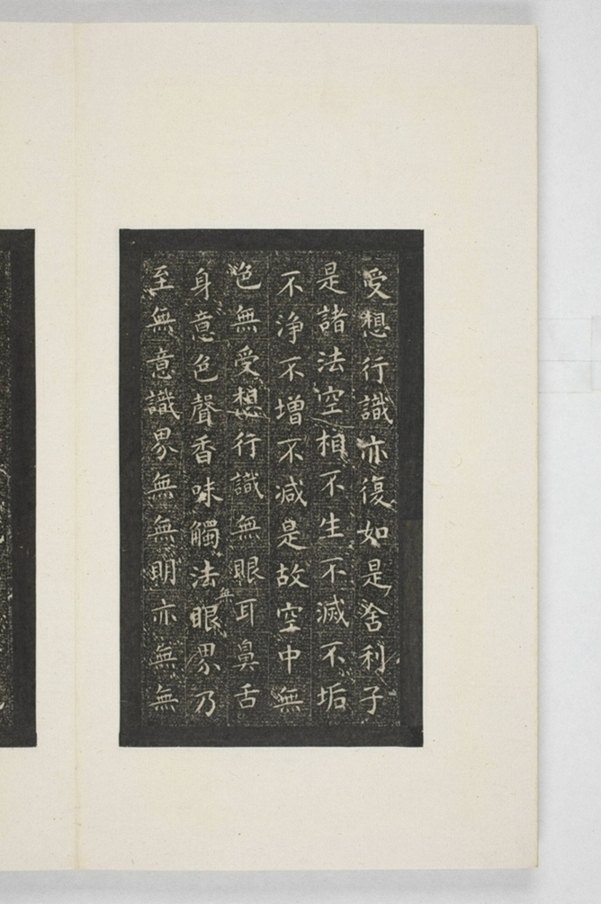 受想行識亦復如是舍利子
是諸法空相不生不滅不垢
不淨不增不減是故空中無
色無受想行識無眼耳鼻舌
身意色聲香味觸法無眼界乃
至無意識界無無明亦無無